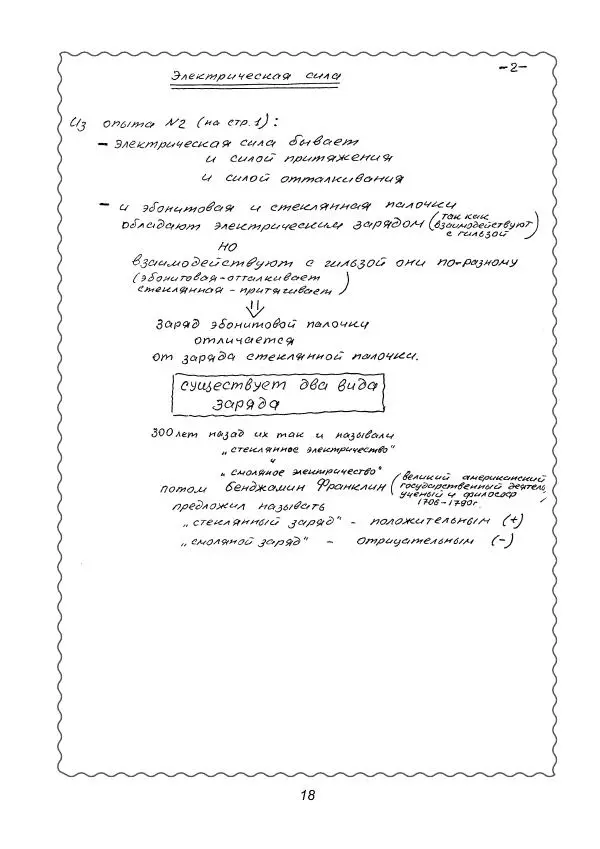 -2-
Электрическая сила
Из опыта N2 (на стр.1):
- электрическая сила бывает
и силой притяжения
и силой отталкивания
- и эбонитовая и стеклянная палочки
обладают электрическим зарядом (так как взаимодействуют с гильзой)
но
взаимодействуют с гильзой они по-разному
(эбонитовая-отталкивает
стеклянная-притягивает)
⇓
заряд эбонитовой палочки
отличается
от заряда стеклянной палочки.
существует два вида
заряда
300 лет назад их так и называли
„стеклянное электричество"
и
„смоляное электричество"
потом Бенджамин Франклин (великий американский государственный деятель, учёный и философ 1706-1790г.)
предложил называть
„стеклянный заряд" - положительным (+)
„смоляной заряд" - отрицательным (-)
18